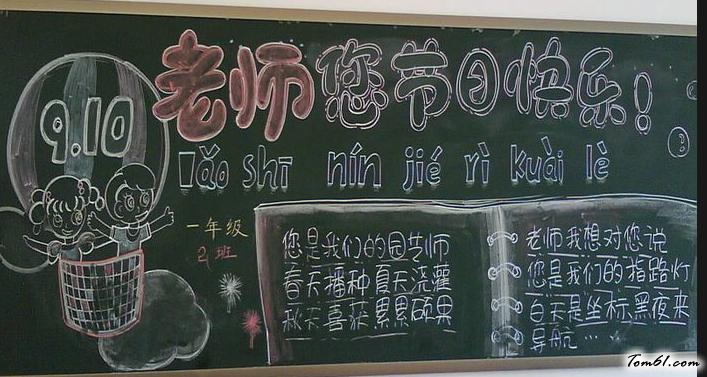 9.10
老师您节日快乐！
lǎo shī nín jié rì kuài lè
一年级
2班
您是我们的园艺师
春天播种夏天浇灌
秋天喜获累累硕果
老师我想对您说
您是我们的指路灯
白天是坐标,黑夜来
导航…
Tom61.com